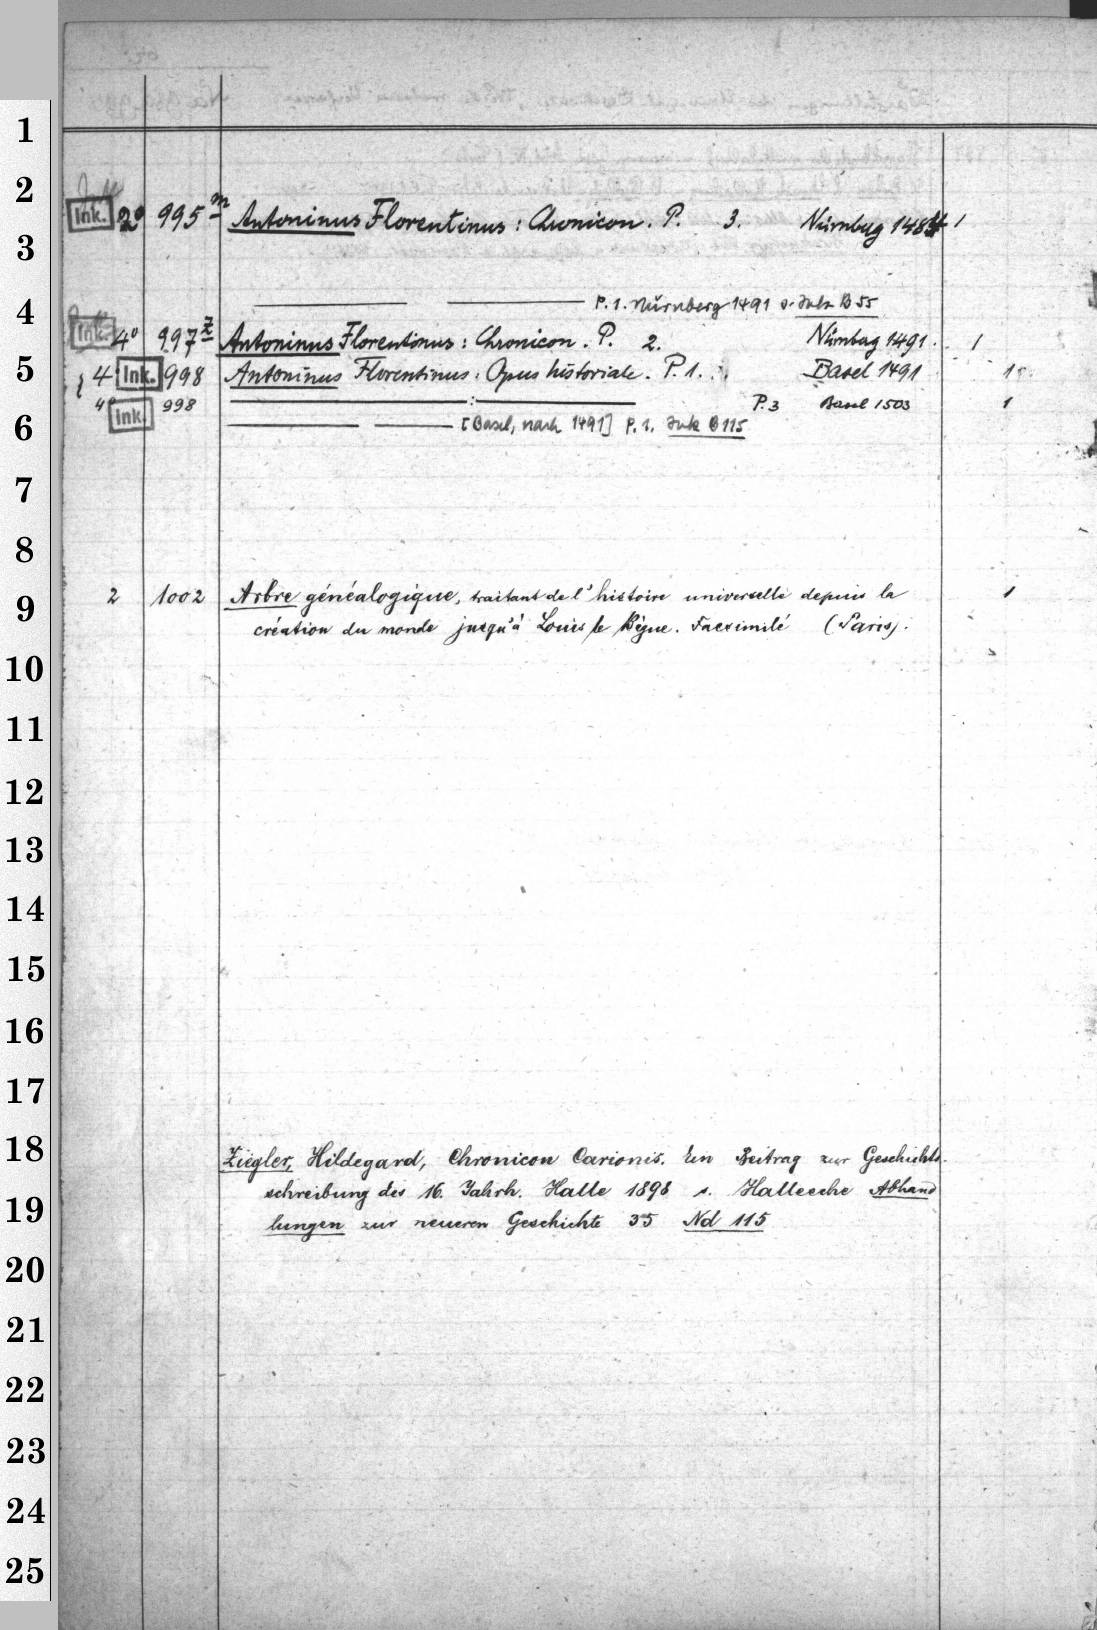 1
2
Ink. 2° 995 m Antoninus Florentinus: Chronicon. P. 3. Nürnberg 1484 1
3
4
P. 1. Nürnberg 1491 s. Ink B 55
Ink. 4° 997 z Antoninus Florentinus: Chronicon. P. 2. Nürnberg 1491. 1
5 4 Ink. 998 Antoninus Florentinus: Opus historiale. P. 1. Basel 1491 1
4° Ink. 998 : P. 3 Basel 1503 1
6 [Basel, nach 1491] P. 1. Ink B 115
7
8
9 2 1002 Arbre généalogique, traitant de l'histoire universelle depuis la 1
création du monde jusqu'à Louis le Bègue. Facsimilé (Paris).
10
11
12
13
14
15
16
17
18 Ziegler, Hildegard, Chronicon Carionis. Ein Beitrag zur Geschichts-
19 schreibung des 16. Jahrh. Halle 1898 s. Hallesche Abhand
lungen zur neueren Geschichte 35 Nd 115
20
21
22
23
24
25